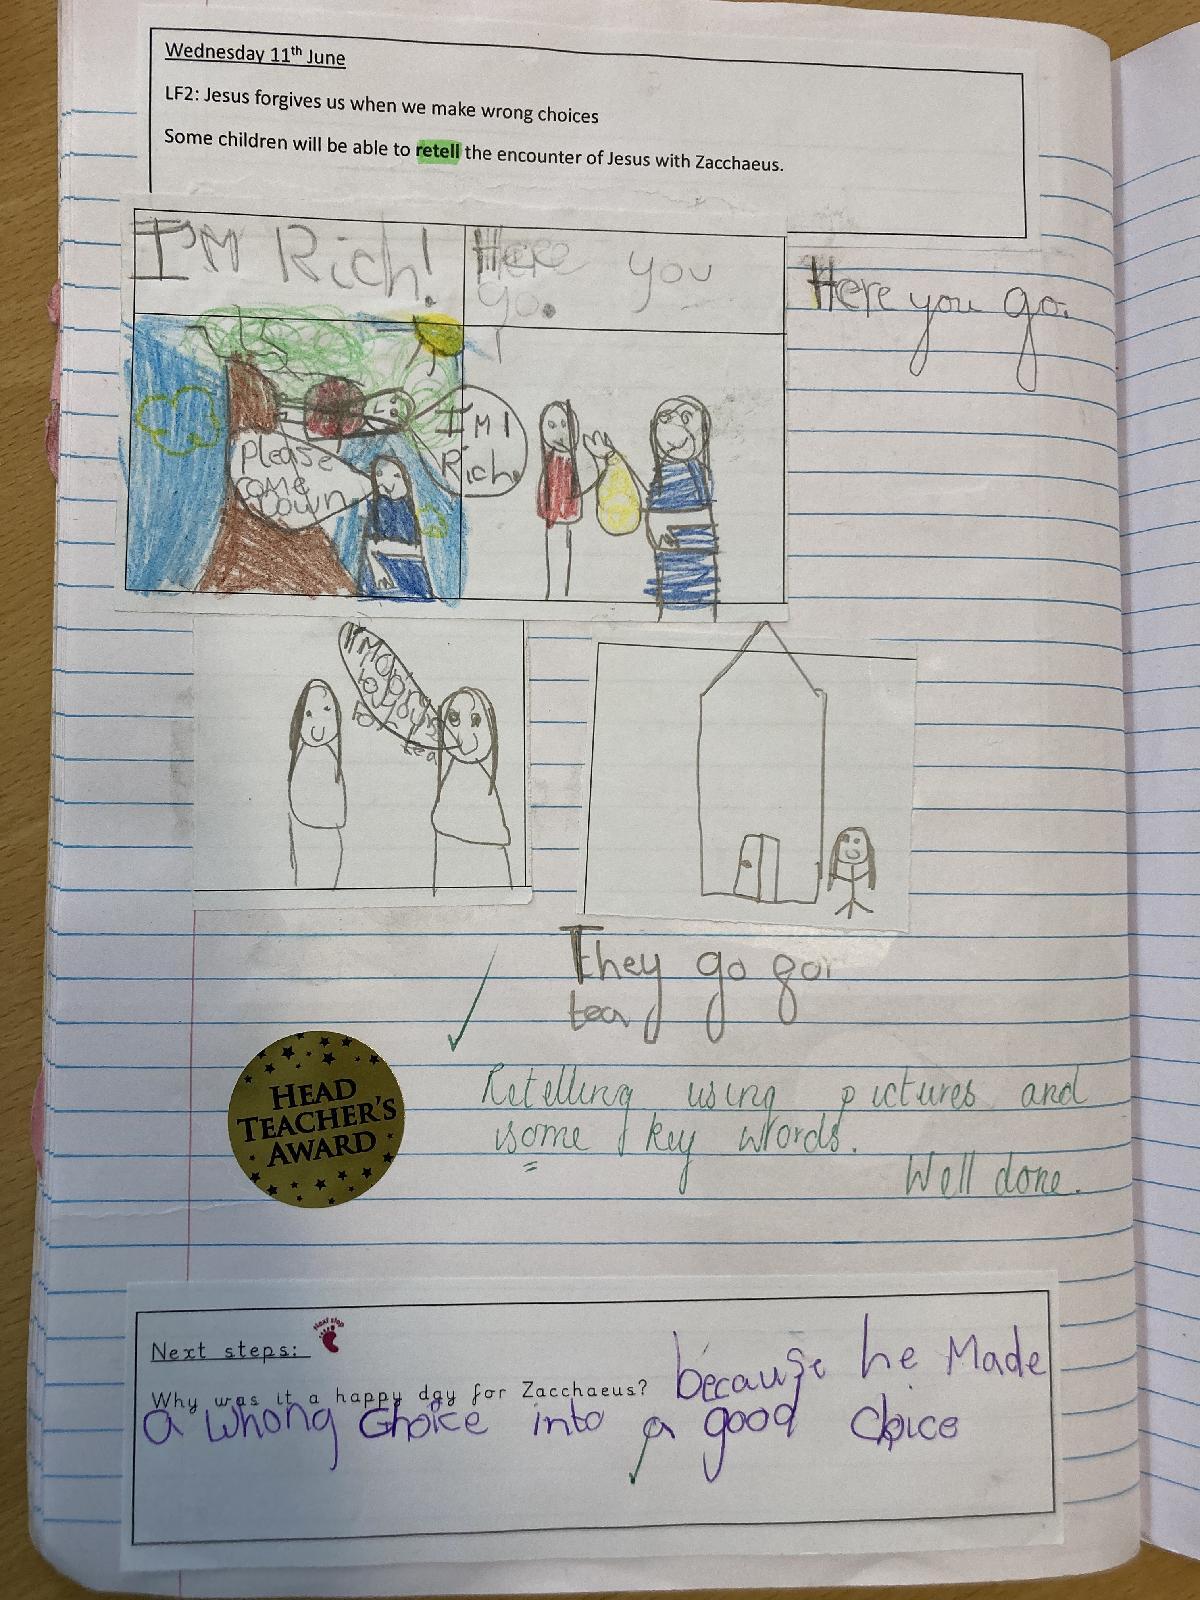 Wednesday 11th June
LF2: Jesus forgives us when we make wrong choices
Some children will be able to retell the encounter of Jesus with Zacchaeus.
I'M Rich!
Here you
go.
Here you go.
Please
come
down
I'M
Rich.
I'M going
to your
for
tea
They go for
tea
HEAD
TEACHER'S
AWARD
Retelling using pictures and
some key words.
Well done.
Next step
Next steps:
Why was it a happy day for Zacchaeus? because he Made
a whong Choice into a good choice